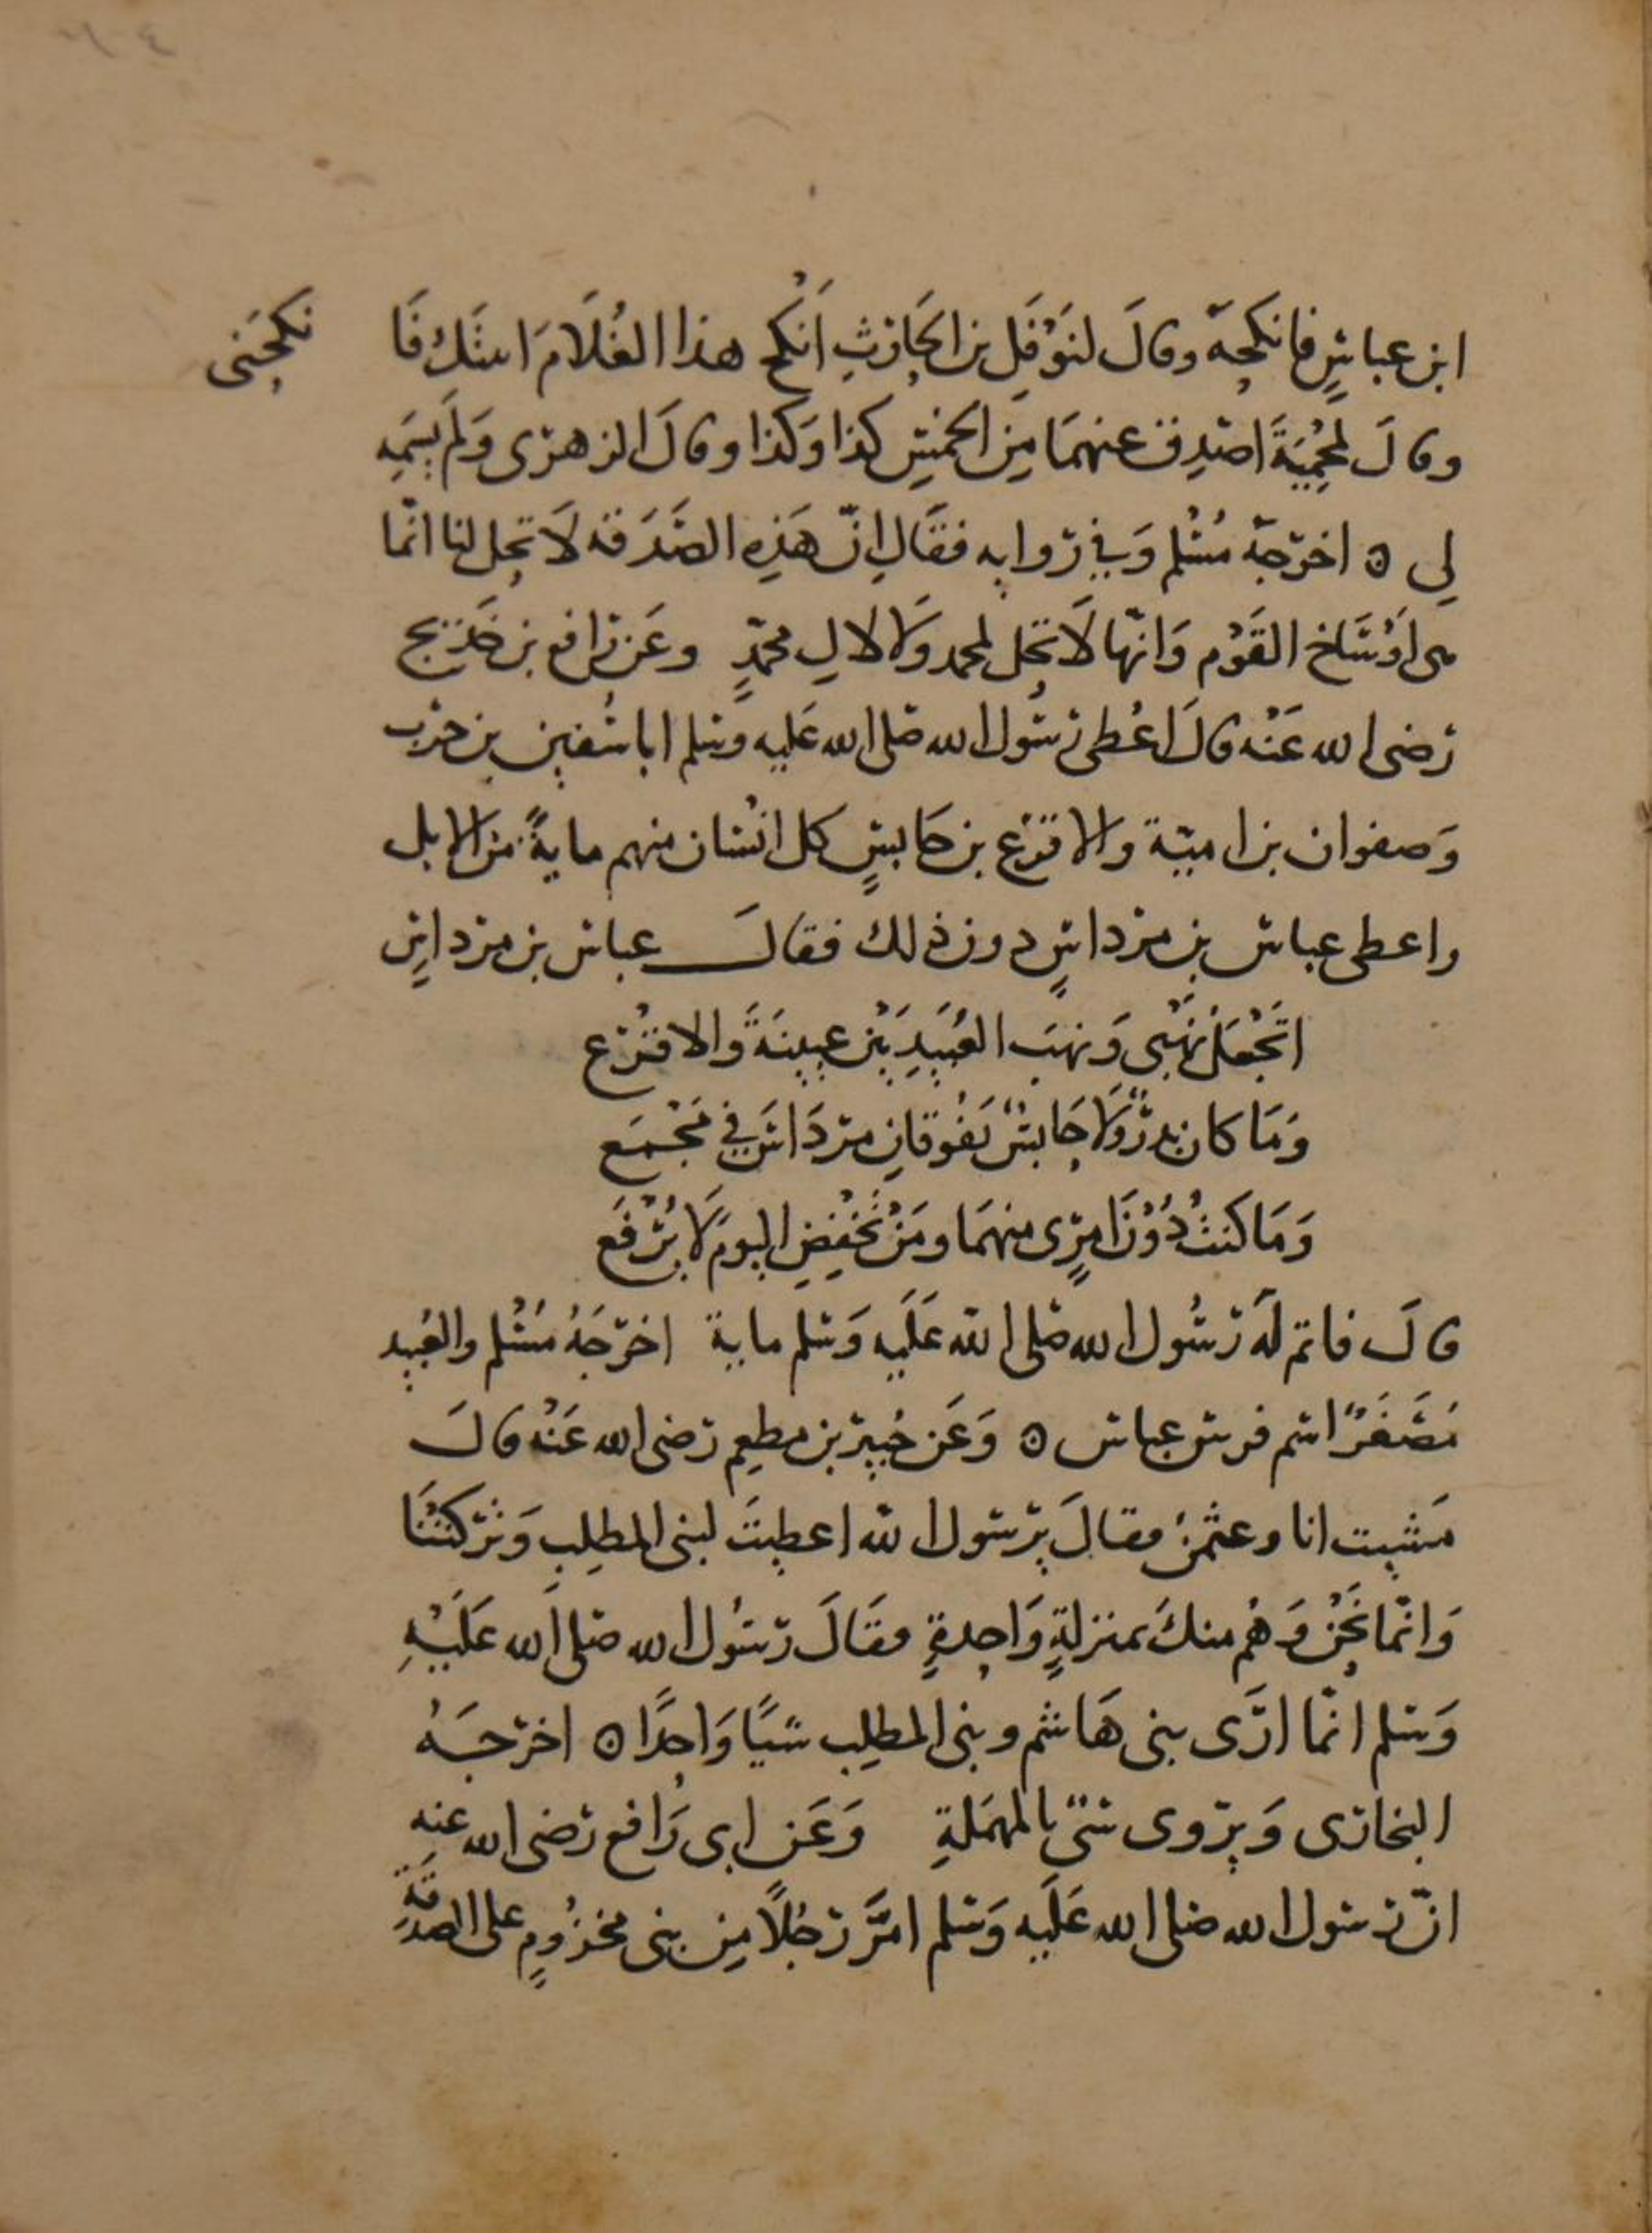 ابن عباسٍ فانكحهُ وقالَ لنَوْفَلِ بن الحَارثِ اَنْكح هذا الغُلَامَ ابنتَك فَا نكحَنى
وقالَ لمحْمِيَةَ اصْدِق عنهمَا مِن الخمُسِ كذا وَكذا وقالَ الزهرى وَلَم يسَمِه
لى ه اخرَجهُ مُسْلم وَفي روايه فقَال اِنّ هَذِه الصَّدَقه لَا تحِل لنا انّما
هى اَوْسَاخ القَوْم وَانّها لَا تحِل لمحمد وَلا لالِ محمّدٍ وعَن رافع بن خَدِيج
رَضى الله عَنْه قالَ اعْطى رسُول الله صَلى الله عَليه وسلم ابا سُفين بن حرب
وَصفوان بن اميّة والاقرَع بن حَابسٍ كل انْسَان منهم مايةً من الابل
واعطى عباس بن مرداسٍ دون ذلك فقالَ عباس بن مرداسٍ
اتَجْعَلُ نَهْبى وَنهبَ العُبَيدِ بَيْن عيينَةَ والاقْرَع
وَمَا كان بدرٌ وَلَا حَابسٌ يَفُوقان مردَاسَ في مَجْمَع
وَمَا كنتُ دُوْنَ امرِىٍ منهمَا ومَنْ تخْفِضِ اليومَ لَا يُرْفَع
قالَ فاتم لَهُ رسُول الله صَلى الله عَلَيه وَسلم ماية اخرَجَهُ مُسْلم والعُبيد
مُصَغَرًا اسم فرس عباس ه وَعَن جُبير بن مطعِم رَضى الله عَنْه قالَ
مَشيت انا وعثمنُ فقالَ يرسول الله اعطيتَ لبنى المطلِب وَتَركْتَنَا
وَانّما نَحْن وَهُم منكَ بمنزلةٍ وَاحِدةٍ فقَالَ رسُول الله صَلى الله عَلَيْهِ
وَسلم انّما ارَى بنى هَاشم وبنى المطلِب شيًا وَاحدًا ه اخرجَهُ
البخارى وَيروى سىّ بالمهمَلةِ وَعَن ابى رَافع رَضى الله عنه
انّ رسول الله صَلى الله عَلَيه وَسلم امَّر رَجُلًا مِن بنى مخزُومٍ على الصدقَةِ